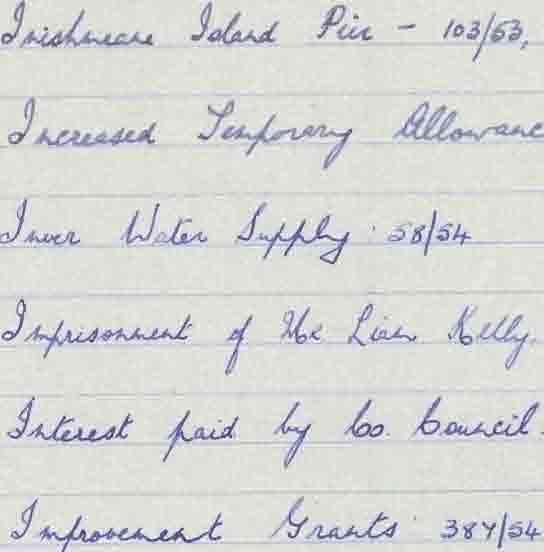 Inishmeane Island Pier - 103/53,
Increased Temporary Allowanc
Inver Water Supply. 58/54
Imprisonment of Mr Liam Kelly.
Interest paid by Co. Council.
Improvement Grants 387/54